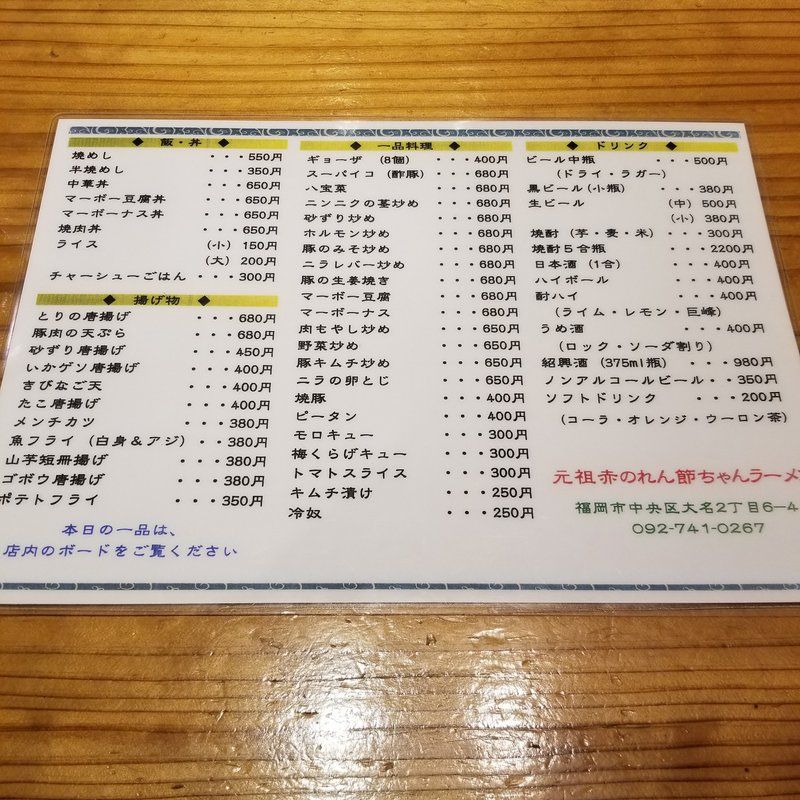 ◆ 飯・丼 ◆
焼めし ・・・550円
半焼めし ・・・350円
中華丼 ・・・650円
マーボー豆腐丼 ・・・650円
マーボーナス丼 ・・・650円
焼肉丼 ・・・650円
ライス (小) 150円
(大) 200円
チャーシューごはん ・・・300円
◆ 揚げ物 ◆
とりの唐揚げ ・・・680円
豚肉の天ぷら ・・・680円
砂ずり唐揚げ ・・・450円
いかゲソ唐揚げ ・・・400円
きびなご天 ・・・400円
たこ唐揚げ ・・・400円
メンチカツ ・・・380円
魚フライ (白身&アジ) ・・380円
山芋短冊揚げ ・・・380円
ゴボウ唐揚げ ・・・380円
ポテトフライ ・・・350円
本日の一品は、
店内のボードをご覧ください
◆ 一品料理 ◆
ギョーザ (8個) ・・・400円
スーパイコ (酢豚) ・・・680円
八宝菜 ・・・680円
ニンニクの茎炒め ・・・680円
砂ずり炒め ・・・680円
ホルモン炒め ・・・680円
豚のみそ炒め ・・・680円
ニラレバー炒め ・・・680円
豚の生姜焼き ・・・680円
マーボー豆腐 ・・・680円
マーボーナス ・・・680円
肉もやし炒め ・・・650円
野菜炒め ・・・650円
豚キムチ炒め ・・・650円
ニラの卵とじ ・・・650円
焼豚 ・・・400円
ピータン ・・・400円
モロキュー ・・・300円
梅くらげキュー ・・・300円
トマトスライス ・・・300円
キムチ漬け ・・・250円
冷奴 ・・・250円
◆ ドリンク ◆
ビール中瓶 ・・・500円
(ドライ・ラガー)
黒ビール(小瓶) ・・・380円
生ビール (中) 500円
(小) 380円
焼酎 (芋・麦・米) ・・・300円
焼酎5合瓶 ・・・2200円
日本酒 (1合) ・・・400円
ハイボール ・・・400円
酎ハイ ・・・400円
(ライム・レモン・巨峰)
うめ酒 ・・・400円
(ロック・ソーダ割り)
紹興酒 (375ml瓶) ・・・980円
ノンアルコールビール・・350円
ソフトドリンク ・・・200円
(コーラ・オレンジ・ウーロン茶)
元祖赤のれん節ちゃんラーメ
福岡市中央区大名2丁目6-4
092-741-0267